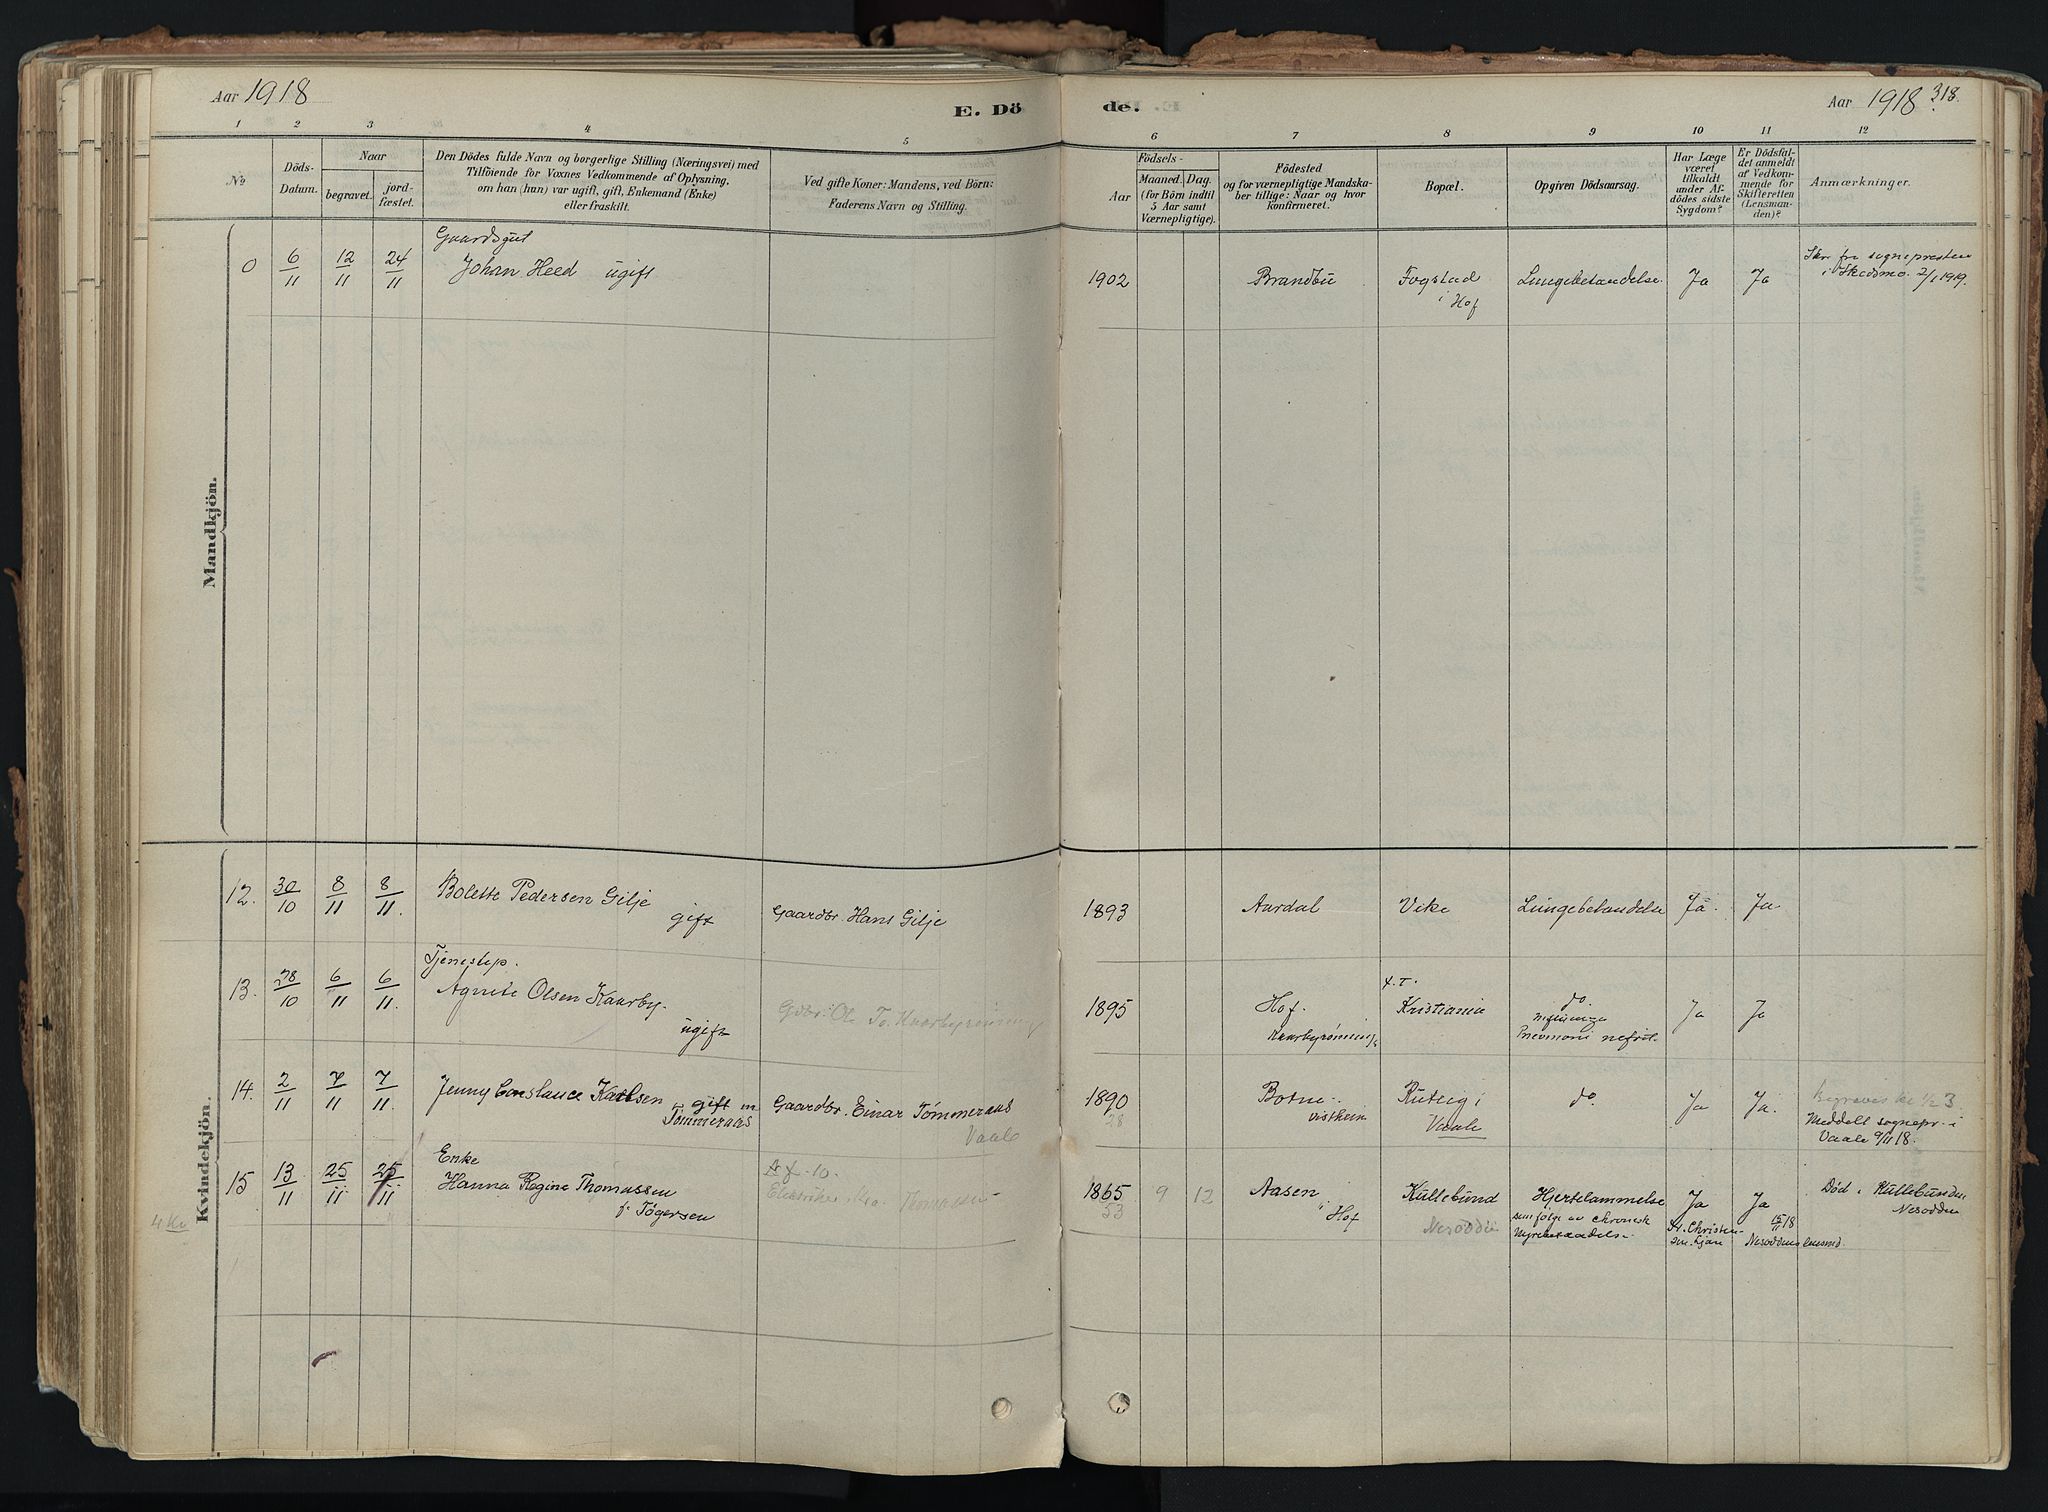 Aar 1918
E. Dö
de.
Aar 1918 318.
1 2 3 4 5 6 7 8 9 10 11 12
No
Döds-
Datum.
Naar
begravet.
jord-
fæstet.
Den Dödes fulde Navn og borgerlige Stilling (Næringsvei) med
Tilföiende for Voxnes Vedkommende af Oplysning,
om han (hun) var ugift, gift, Enkemand (Enke)
eller fraskilt.
Ved gifte Koner: Mandens, ved Börn:
Faderens Navn og Stilling.
Födsels-
Aar
Maaned. Dag.
(for Börn indtil
5 Aar samt
Værnepligtige).
Födested
og for værnepligtige Mandska-
ber tillige: Naar og hvor
konfirmeret.
Bopæl.
Opgiven Dödsaarsag.
Har Læge
været
tilkaldt
under Af-
dödes sidste
Sygdom?
Er Dödsfal-
det anmeldt
af Vedkom-
mende for
Skifteretten
(Lensman-
den)?
Anmærkninger.
Mandkjön.
0 6/11 12/11 24/11
Gaardsgut
Johan Heed ugift
1902
Brandbu
Fogstad
i Hof
Lungebetændelse.
Ja
Ja
Skr. fra sognepresten
i Skedsmo. 2/1 1919.
Kvindekjön.
12. 30/10 8/11 8/11.
Bolette Pedersen Gilje
gift
Gaardbr. Hans Gilje
1893
Aardal
Vike
Lungebetændelse
Ja.
Ja
13. 28/10 6/11 6/11.
Tjenestep.
Agnete Olsen Kaarby.
ugift
Gdbr. Ol. To. Kaarbyrønning
1895
Hof.
Kaarbyrønning
f.T.
Kristiania
do.
Pneumoni nefrit.
Ja
J
14. 2/11 7/11 7/11.
Jenny Constance Karlsen
gift m
Tømmeraas
Gaardbr. Einar Tømmeraas
Vaale
1890
28
Botne.
Vaale
do.
Ja
Ja.
Begraves kl ½ 3
Meddelt sognepr. i
Vaale 9/11 18.
15 13/11 25/11 25/11
Enke
Hanna Regine Thomassen
f. Tøgersen
Thomassen
1865 9 12
53
Aasen
i Hof
Kullebund
Nesodden
Hjertelammelse
som følge av chronisk
nyrebetændelse.
Ja
Dr. Christen-
sen. Ljan
Ja
15/11 18
Nesoddens lensmd.
Død i Kullebunden
Nesodden
4 Kv